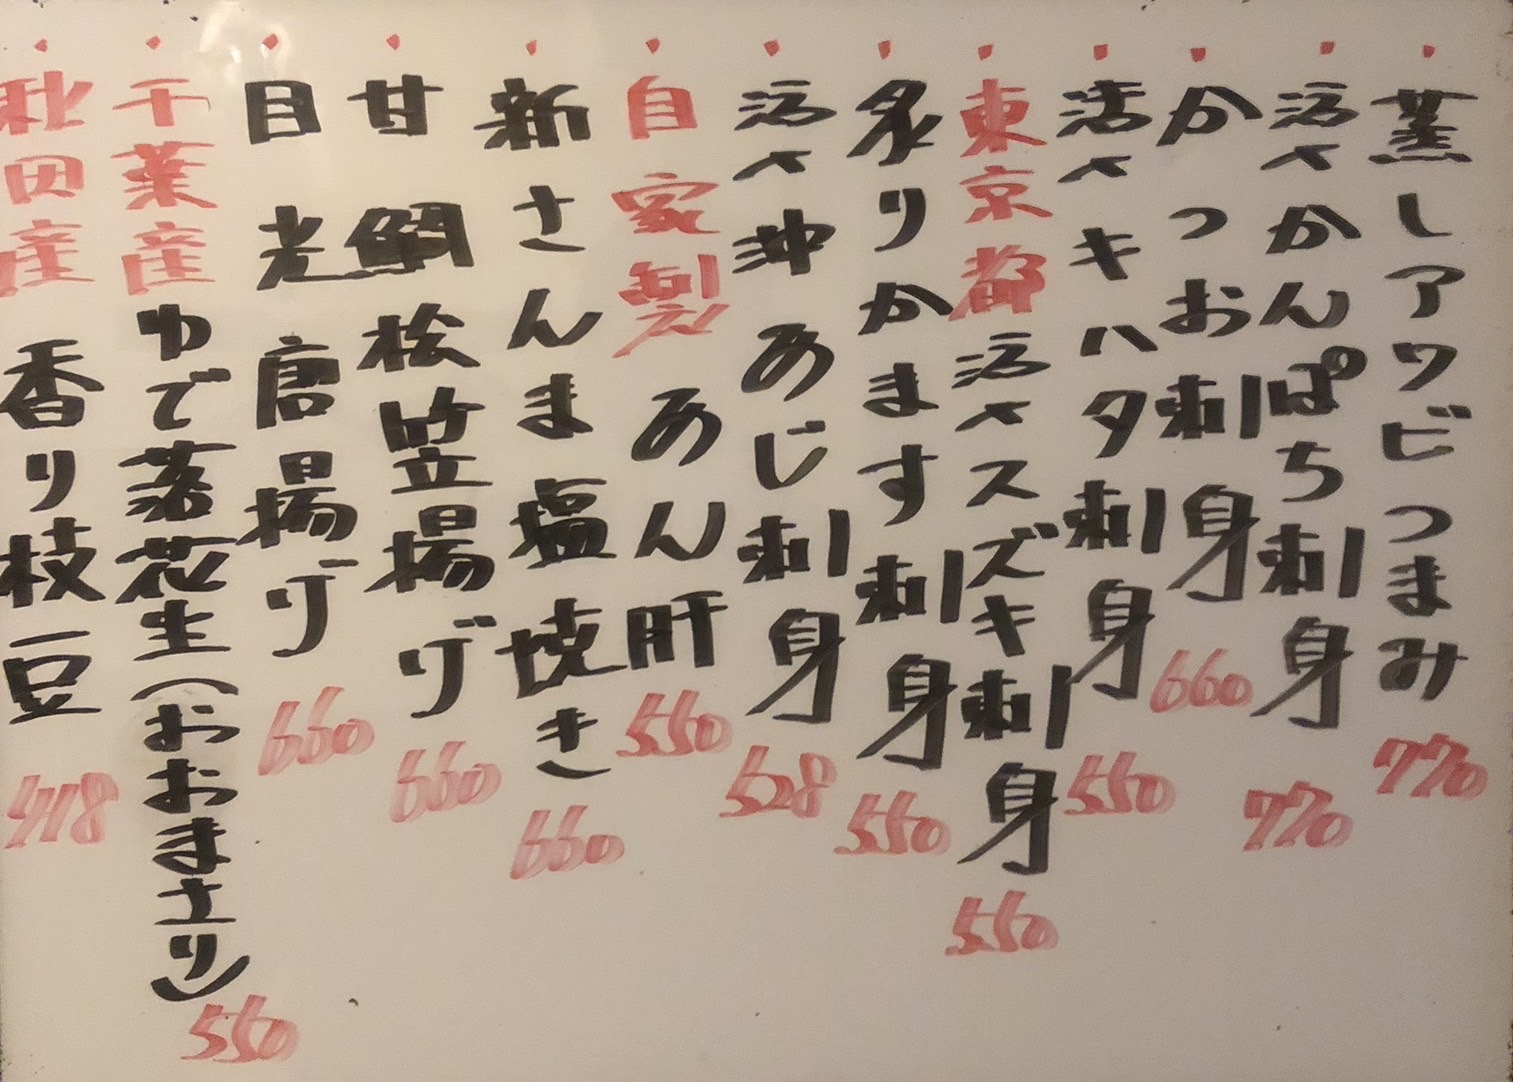 ・蒸しアワビつまみ 770
・活〆かんぱち刺身 770
・かつお刺身 660
・活〆キハタ刺身 550
・東京都活〆スズキ刺身 550
・炙りかます刺身 550
・活〆沖あじ刺身 528
・自家製あん肝 550
・新さんま塩焼き 660
・甘鯛松笠揚げ 660
・目光唐揚げ 660
・千葉産ゆで落花生(おおまさり) 550
・秋田産香り枝豆 418